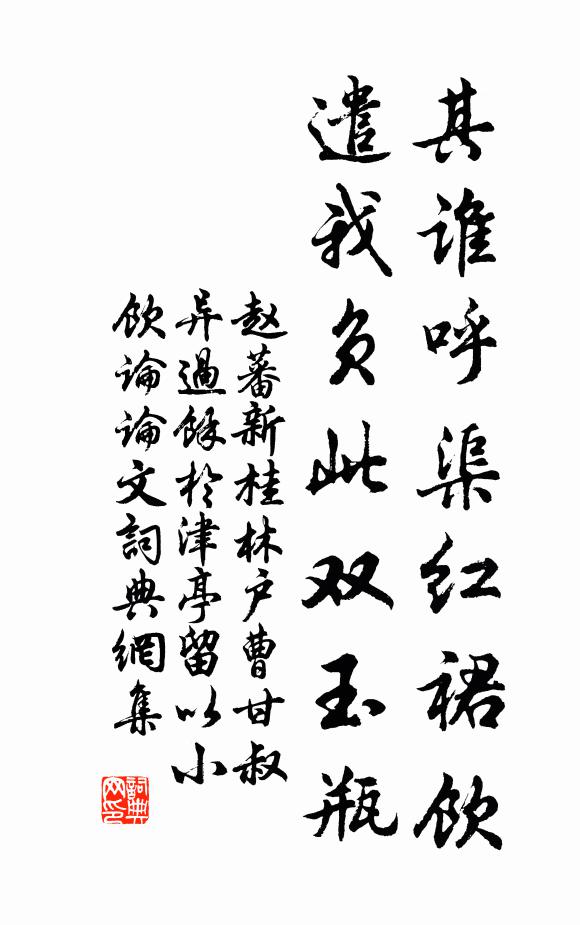 其谁呼渠红裙饮
遣我负此双玉瓶
赵蕃新桂林户曹甘叔
异過馀於津亭留以小
饮論論文詞典網集
詞典
网印